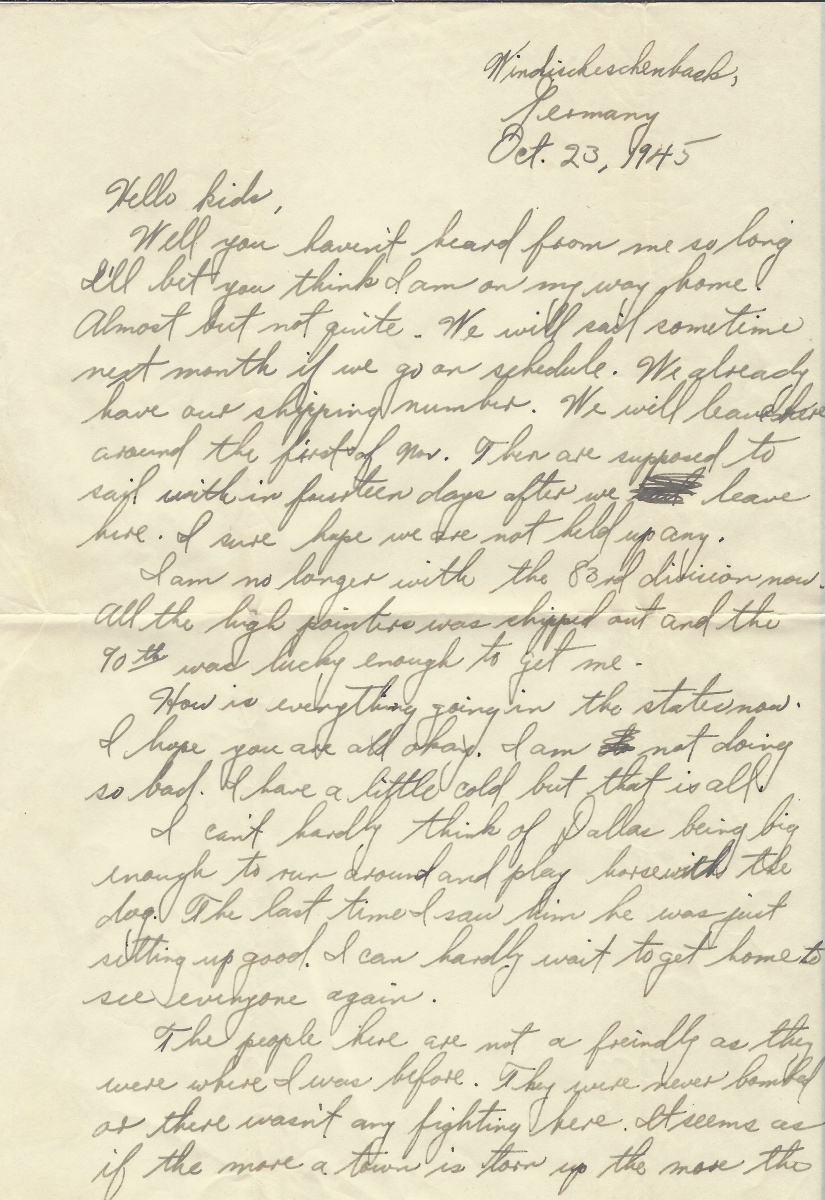 Windischeschenback,
Germany
Oct. 23, 1945
Hello kids,
Well you haven't heard from me so long
I'll bet you think I am on my way home.
Almost but not quite. We will sail sometime
next month if we go on schedule. We already
have our shipping number. We will leave here
around the first of Nov. Then are supposed to
sail with in fourteen days after we leave
here. I sure hope we are not held up any.
I am no longer with the 83rd division now.
All the high pointers was shipped out and the
90th was lucky enough to get me.
How is everything going in the states now.
I hope you are all okay. I am not doing
so bad. I have a little cold but that is all.
I can't hardly think of Dallas being big
enough to run around and play horse with the
dog. The last time I saw him he was just
sitting up good. I can hardly wait to get home to
see everyone again.
The people here are not a freindly as they
were where I was before. They were never bombed
or there wasn't any fighting here. It seems as
if the more a town is torn up the more the